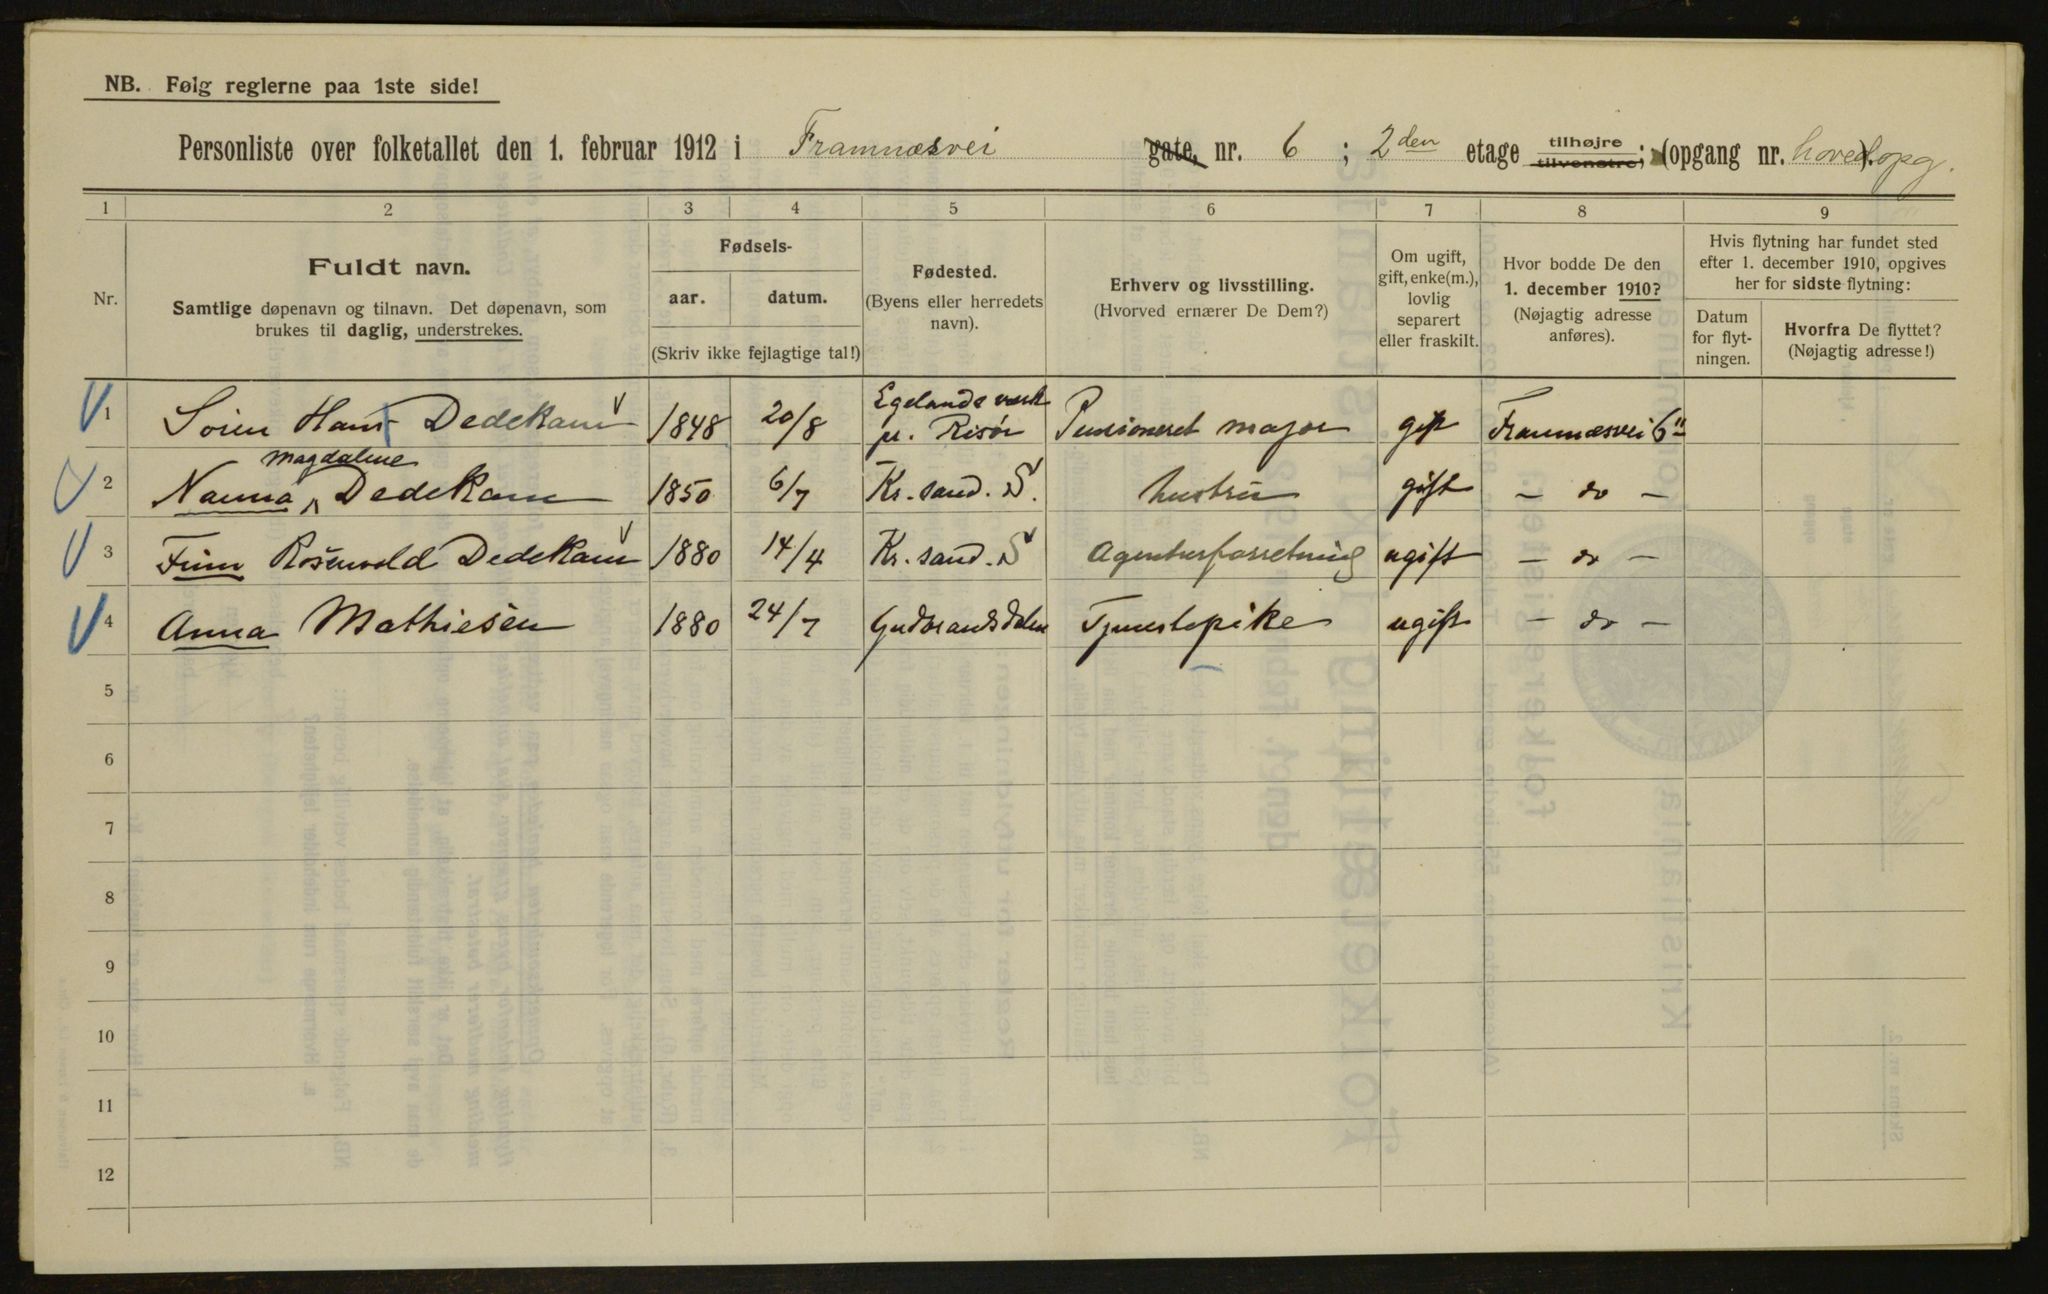 NB. Følg reglerne paa 1ste side!
Personliste over folketallet den 1. februar 1912 i Framnæsvei gate, nr. 6 ; 2den etage tilhøjre tilvenstre; (opgang nr. hovedopg.
1 2 3 4 5 6 7 8 9
Nr.
Fuldt navn.
Samtlige døpenavn og tilnavn. Det døpenavn, som
brukes til daglig, understrekes.
Fødsels-
aar. datum.
(Skriv ikke fejlagtige tal!)
Fødested.
(Byens eller herredets
navn).
Erhverv og livsstilling.
(Hvorved ernærer De Dem?)
Om ugift,
gift, enke(m.),
lovlig
separert
eller fraskilt.
Hvor bodde De den
1. december 1910?
(Nøjagtig adresse
anføres).
Hvis flytning har fundet sted
efter 1. december 1910, opgives
her for sidste flytning:
Datum
for flyt-
ningen.
Hvorfra De flyttet?
(Nøjagtig adresse!)
1 Sören Hans Dedekam 1848 20/8 Egelands værk pr. Risör Pensioneret major gift Framnæsvei 6II
2 Nanna Magdalene Dedekam 1850 6/7 Kr. sand. S. hustru gift – do –
3 Finn Rosenvold Dedekam 1880 14/4 Kr. sand. S Agenturforretning ugift – do –
4 Anna Mathiesen 1880 24/7 Gudbrandsdalen Tjenestepike ugift – do –
5
6
7
8
9
10
11
12